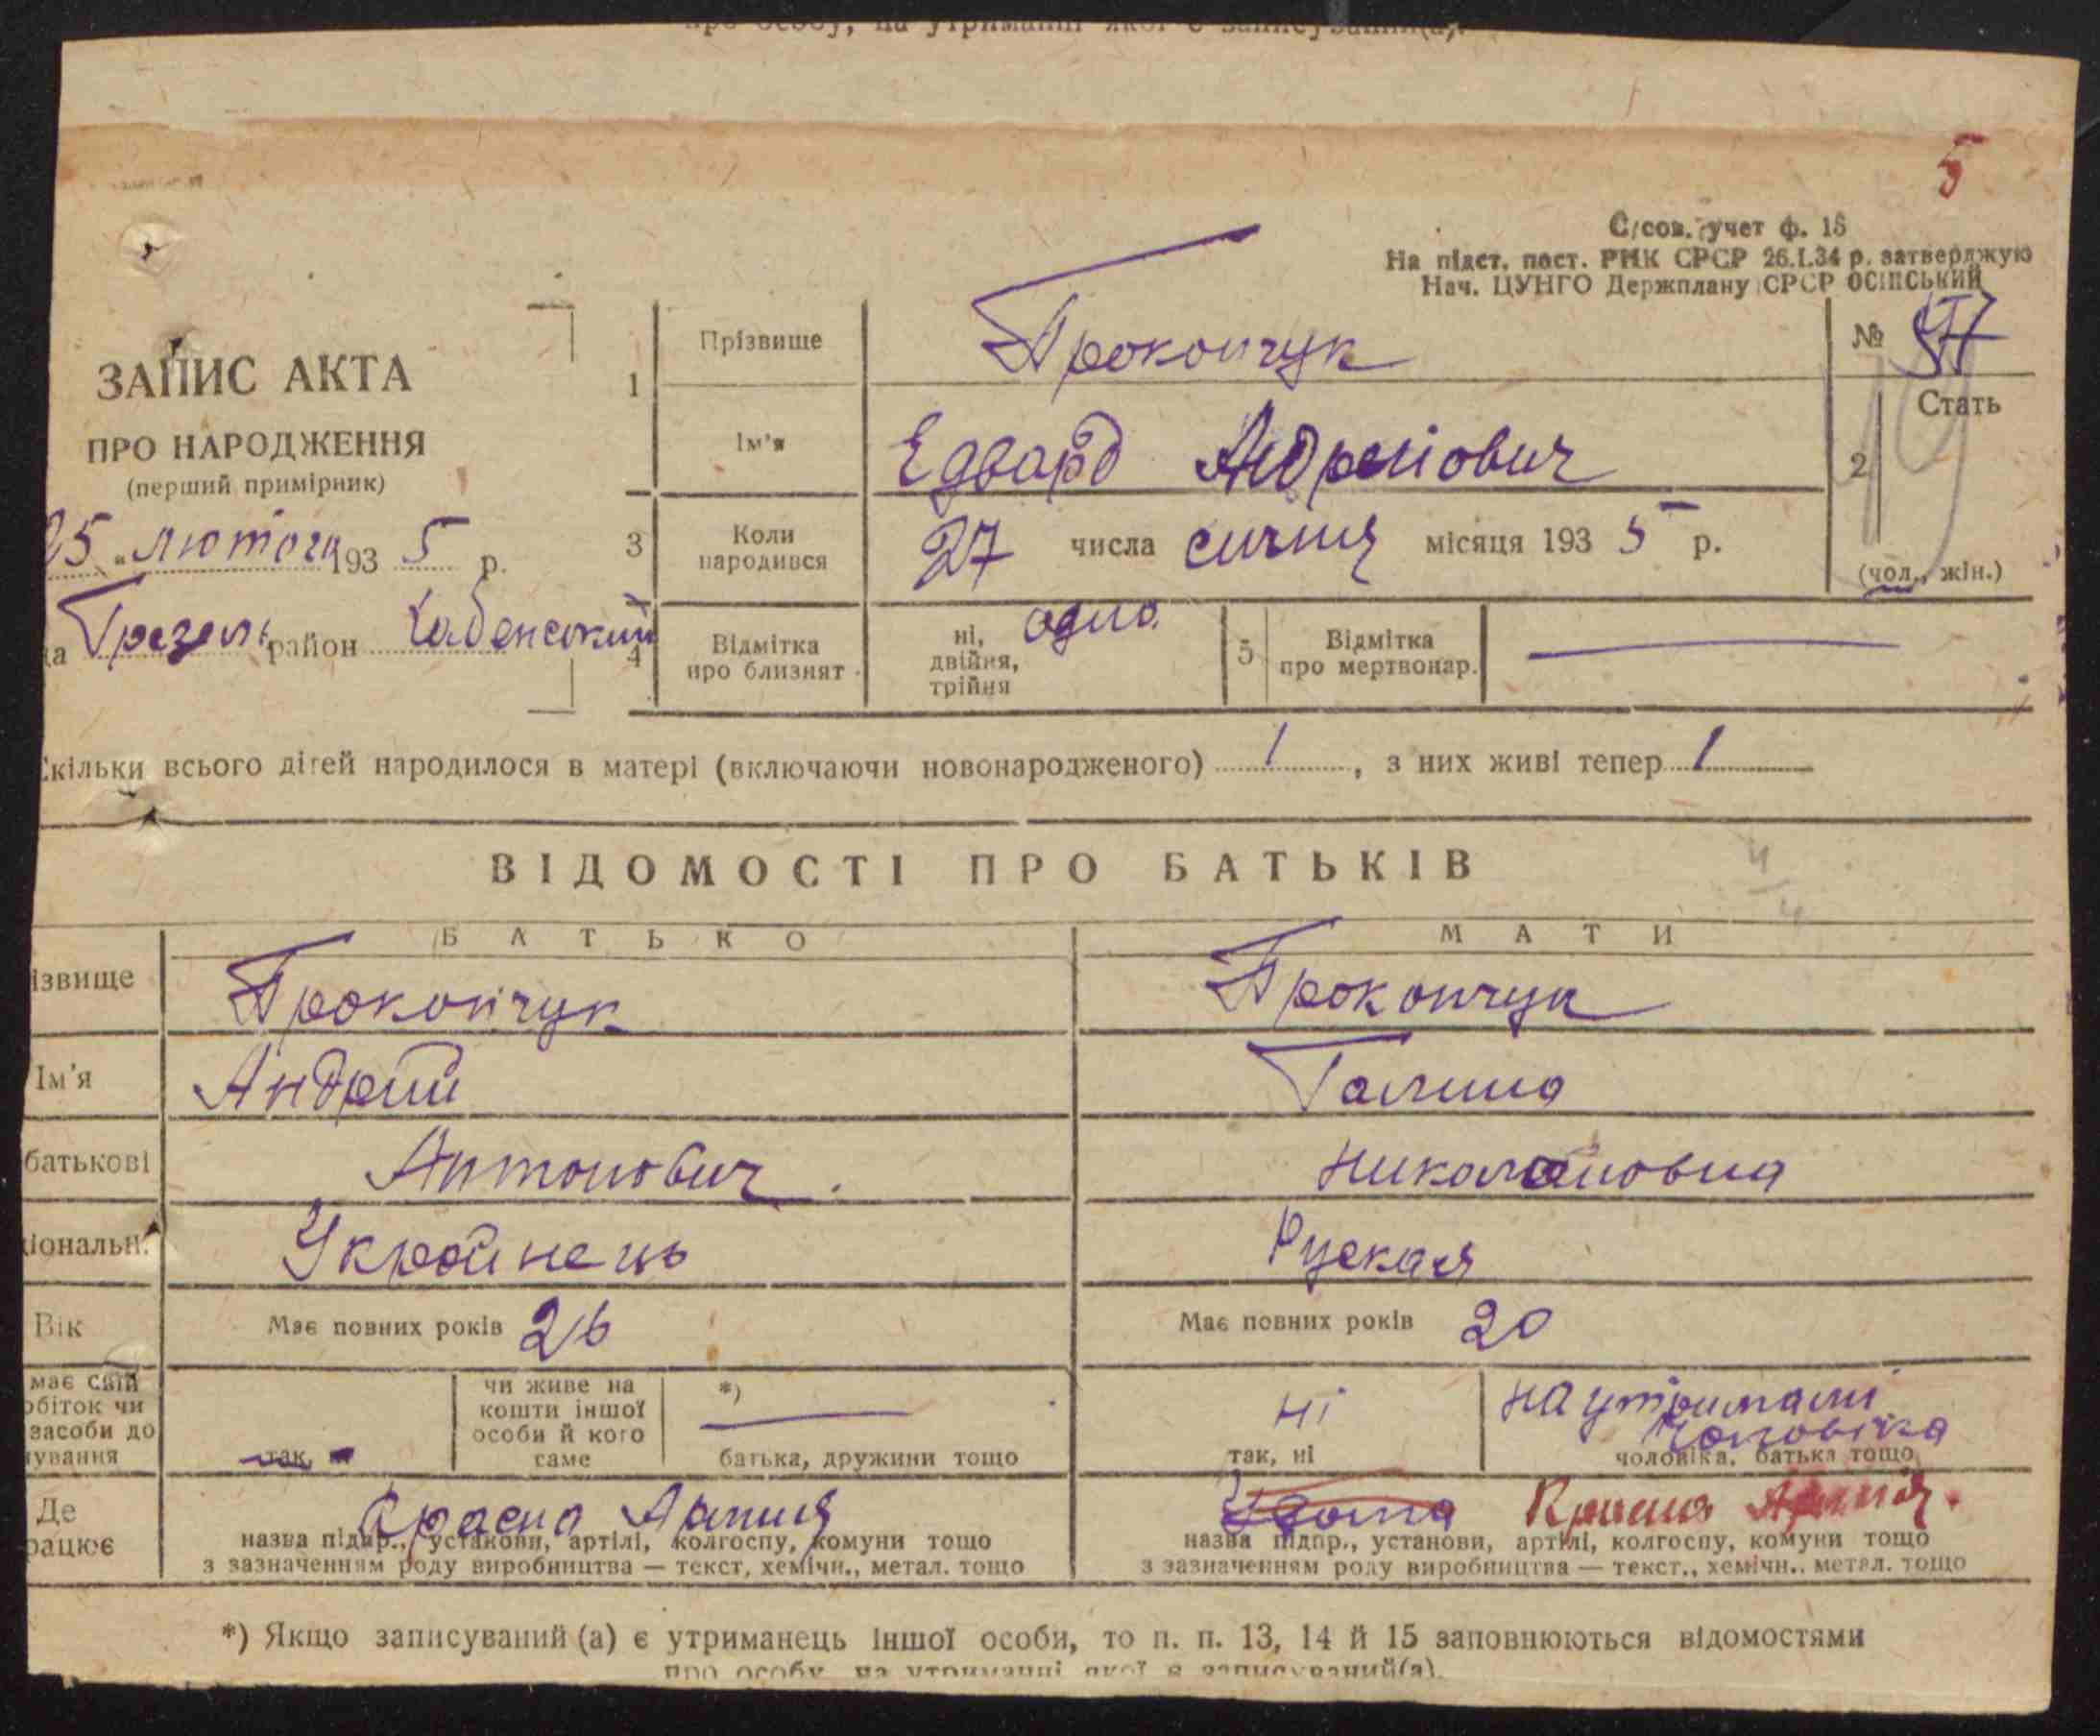 про особу, на утриманні якої є записуваний(а).
5
С/сов. учет ф. 18
На підст. пост. РНК СРСР 26.I.34 р. затверджую
Нач. ЦУНГО Держплану СРСР ОСІНСЬКИЙ
ЗАПИС АКТА
ПРО НАРОДЖЕННЯ
(перший примірник)
25 " лютого 193 5 р.
да Грезля район Хабенський
1 Прізвище Прокопчук
№ 57
Ім'я Едвард Андреіович
2 Стать
(чол., жін.)
3 Коли народився 27 числа січня місяця 193 5 р.
4 Відмітка про близнят ні, двійня, трійня одно.
5 Відмітка про мертвонар. —
Скільки всього дітей народилося в матері (включаючи новонародженого) 1, з них живі тепер 1
ВІДОМОСТІ ПРО БАТЬКІВ
БАТЬКО МАТИ
ізвище Прокопчук Прокопчук
Ім'я Андрій Галина
батькові Антонович Николаіовна
ціональн. Украйнець Руская
Вік Має повних років 26 Має повних років 20
має свій
обіток чи
засоби до
чування
так,
чи живе на
кошти іншої
особи й кого
саме
*) —
батька, дружини тощо
ні
так, ні
на утримані
чоловіка
чоловіка, батька тощо
Де
рацює
Красна Армия
назва підпр., установи, артілі, колгоспу, комуни тощо
з зазначенням роду виробництва — текст, хемічн., метал. тощо
Красна Армия.
назва підпр., установи, артілі, колгоспу, комуни тощо
з зазначенням роду виробництва — текст., хемічн., метал. тощо
*) Якщо записуваний (а) є утриманець іншої особи, то п. п. 13, 14 й 15 заповнюються відомостями
про особу, на утриманні якої є записуваний(а).